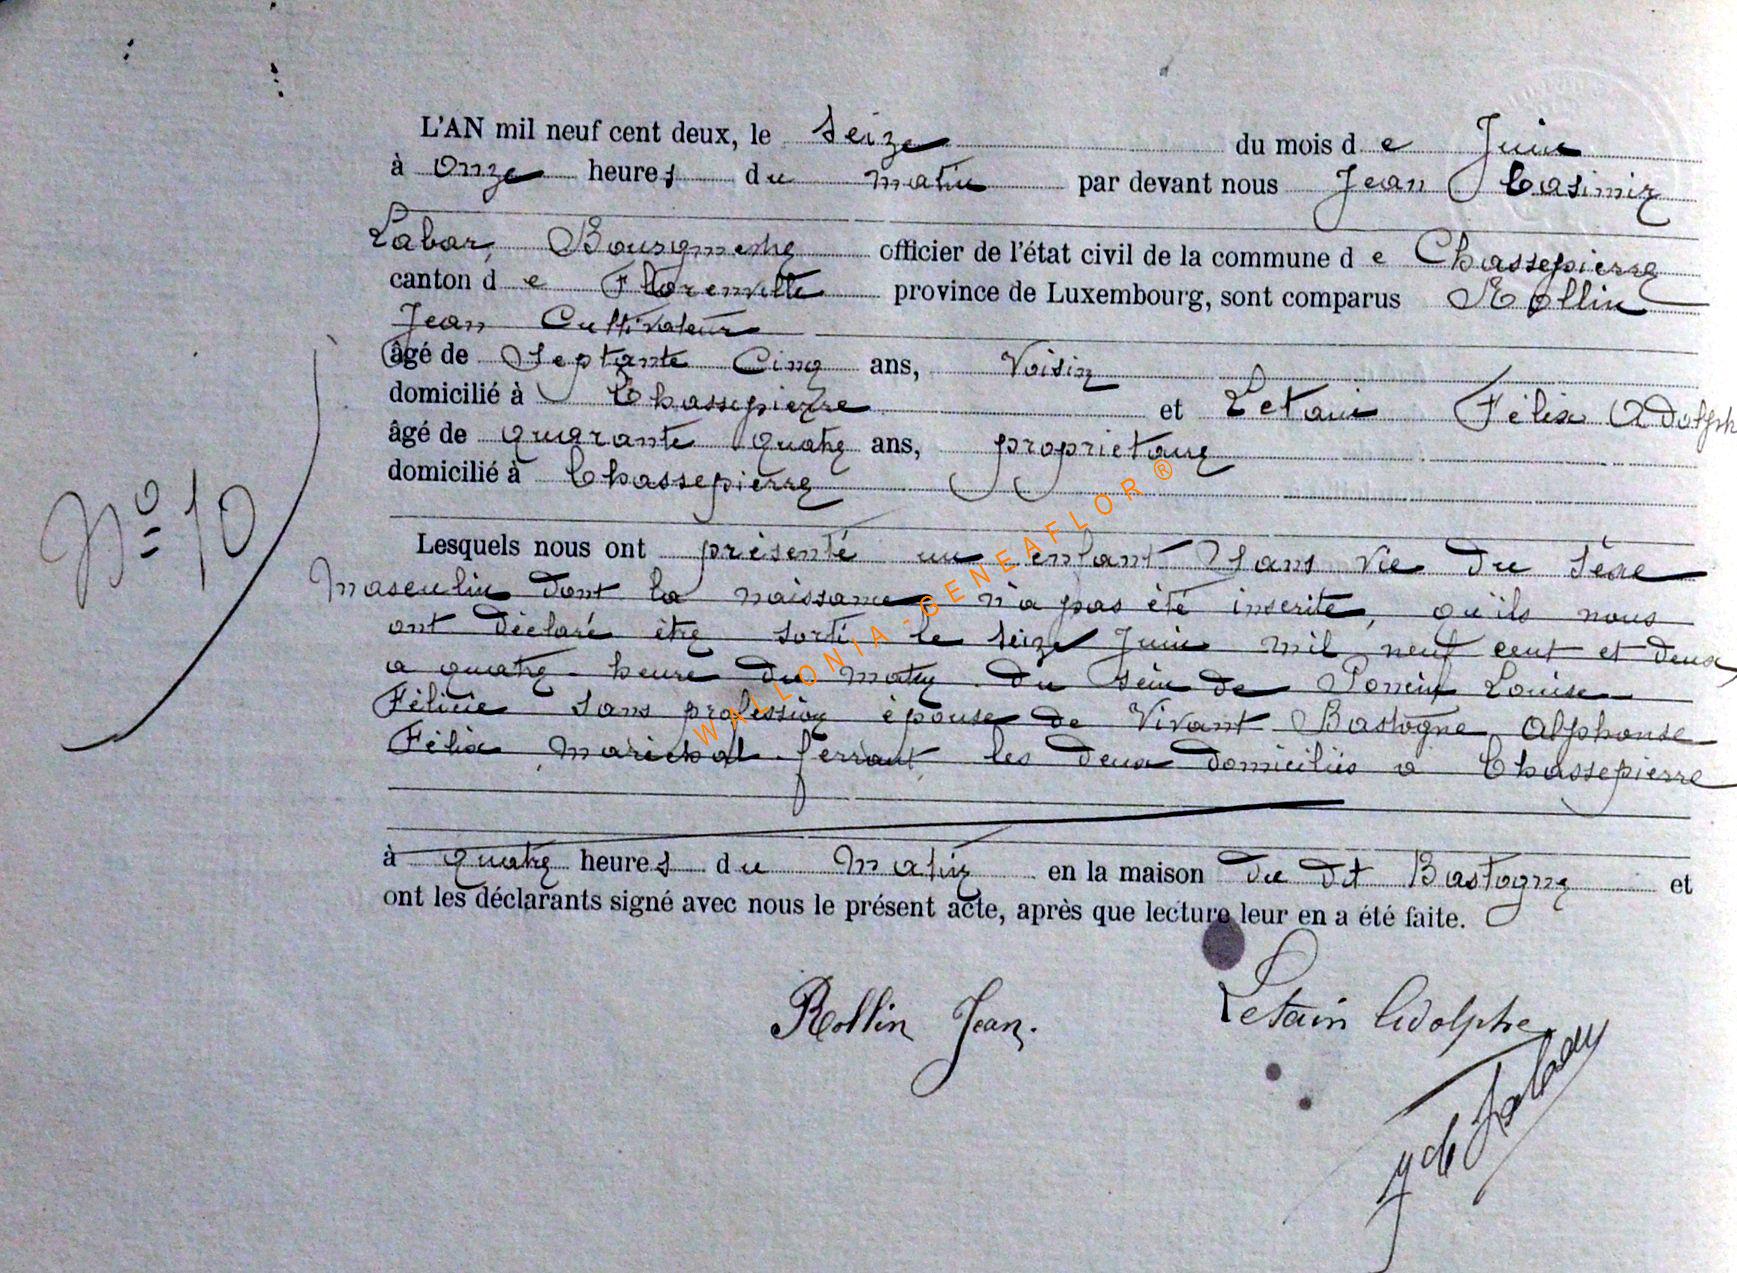 L'AN mil neuf cent deux, le seize du mois de Juin
à onze heures du matin par devant nous Jean Casimir
Labar, Bourgmestre officier de l'état civil de la commune de Chassepierre
canton de Florenville province de Luxembourg, sont comparus Rollin
Jean Cultivateur
âgé de septante cinq ans, Voisin
domicilié à Chassepierre et Letain Félix Adolph
âgé de quarante quatre ans, proprietaire
domicilié à Chassepierre
N° 10
Lesquels nous ont présenté un enfant sans vie du sèxe
masculin dont la naissance n'a pas été inscrite, qu'ils nous
ont déclaré être sorti le seize Juin mil neuf cent et deux
a quatre heure du matin du sein de Poncin Louise
Félicie sans profession épouse de Vivant Bastogne Alphonse
Félix, marichal ferrant, les deux domiciliés a Chassepierre
à quatre heures du matin en la maison du dit Bastogne et
ont les déclarants signé avec nous le présent acte, après que lecture leur en a été faite.
Rollin Jean. Letain Adolphe
WALLONIA-GENEAFLOR®